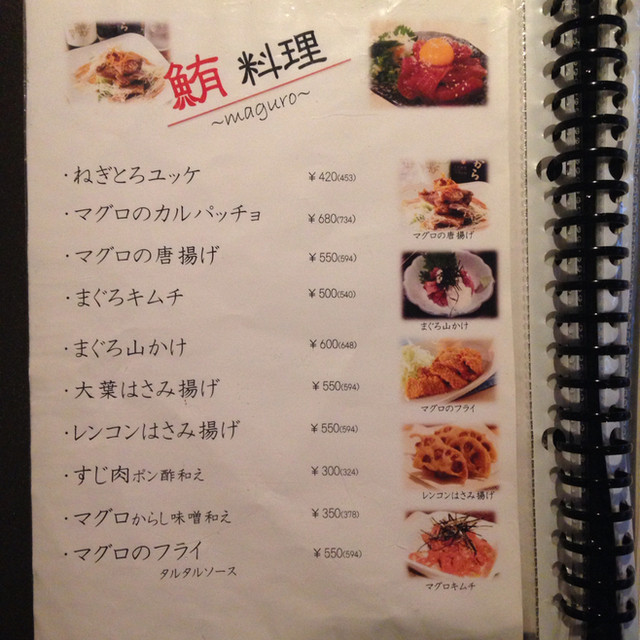 鮪料理
~maguro~
・ねぎとろユッケ ￥420(453)
・マグロのカルパッチョ ￥680(734)
・マグロの唐揚げ ￥550(594)
・まぐろキムチ ￥500(540)
・まぐろ山かけ ￥600(648)
・大葉はさみ揚げ ￥550(594)
・レンコンはさみ揚げ ￥550(594)
・すじ肉ポン酢和え ￥300(324)
・マグロからし味噌和え ￥350(378)
・マグロのフライ ￥550(594)
タルタルソース
マグロの唐揚げ
まぐろ山かけ
マグロのフライ
レンコンはさみ揚げ
マグロキムチ